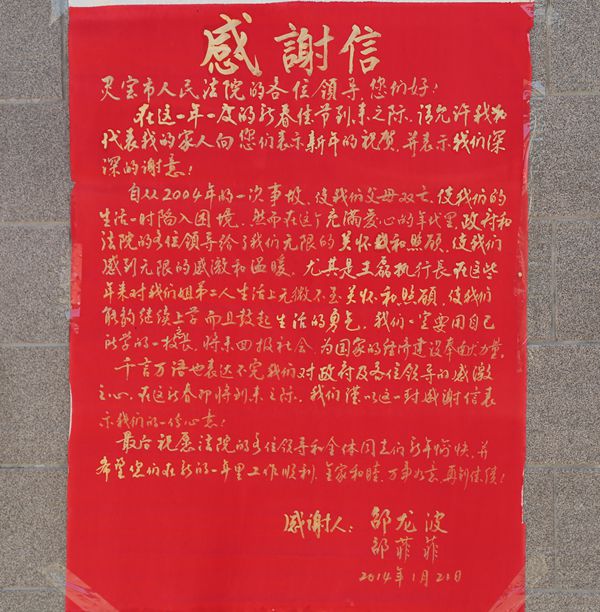 感謝信
灵宝市人民法院的各位領导,您们好!
在这一年一度的新春佳节到来之际,请允许我和
代表我的家人向您们表示新年的祝贺,并表示我们深
深的谢意!
自从2004年的一次事故,使我们父母双亡,使我们的
生活一时陷入困境,然而在这个充滿爱心的年代里,政府和
法院的各位領导给了我们无限的关怀和照顾,使我们
感到无限的感激和温暖,尤其是王磊执行長在这些
年来对我们姐弟二人生活上无微不至关怀和照顾,使我们
能夠继续上学而且鼓起生活的勇气,我们一定要用自己
所学的一技長,将来回报社会,为国家的经济建设奉献力量,
千言万语也表达不完我们对政府及各位领导的感激
之心,在这新春即将到来之际,我们谨以这一封感谢信表
示我们的一份心意!
最后祝愿法院的各位领导和全体同志们新年愉快,并
希望您们在新的一年里工作顺利,全家和睦,万事如意,再到佳绩!
感谢人:邵龙波
邵菲菲
2014年1月21日